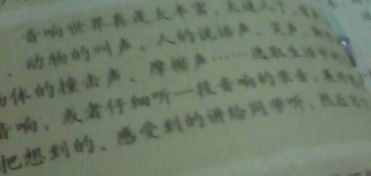 音响世界真是太丰富、太迷人了，
、动物的叫声、人的说话声、笑声、
物体的撞击声、摩擦声……选取生活中
音响，或者仔细听一段音响的录音，展开
把想到的、感受到的讲给同学听，然后